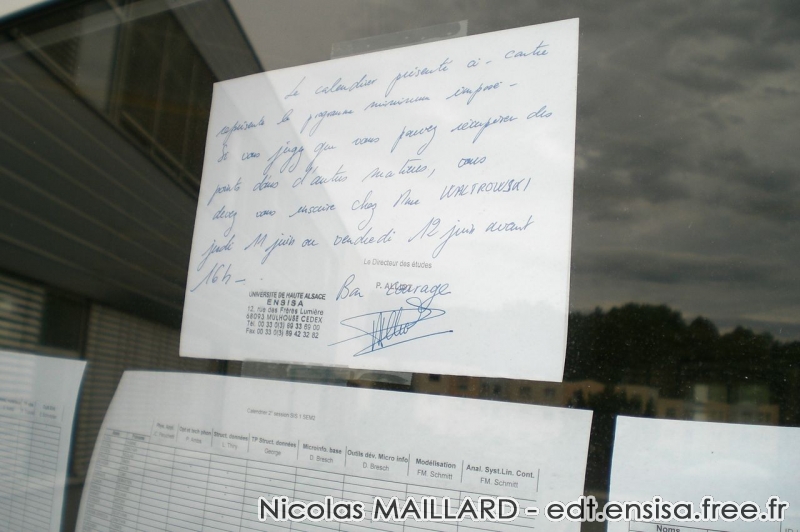 Le calendrier présenté ci-contre
représente le programme minimum imposé.
Si vous jugez que vous pouvez récupérer des
points dans d'autres matières, vous
devez vous inscrire chez Mme WALTROWSKI
jeudi 11 juin ou vendredi 12 juin avant
16h
Le Directeur des études
Bon courage
UNIVERSITE DE HAUTE ALSACE
ENSISA
12, rue des Frères Lumière
68093 MULHOUSE CEDEX
Tél. 00 33 (0)3 89 33 69 00
Fax 00 33 (0)3 89 42 32 82
Structi. données TP Struct. données Microinfo. base Outils dév. Micro info Modélisation Anal. Syst.Lin. Cont.
George D. Bresch D. Bresch FM. Schmitt FM. Schmitt
Noms
Nicolas MAILLARD - edt.ensisa.free.fr